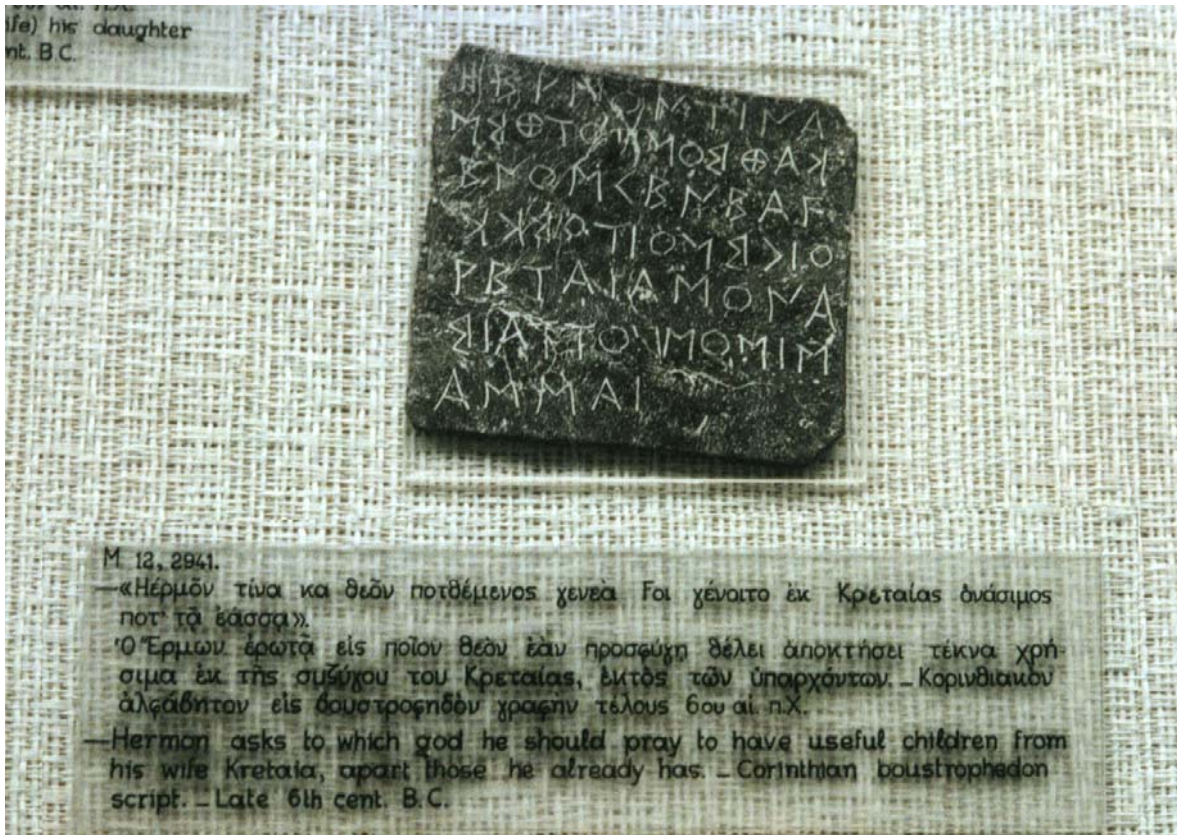 his daughter
B.C.
ΗΕΡΜΟΝΤΙΝΑ
ΚΑΘΕΟΝΠΟΤΘΕΜ
ΕΝΟΣΓΕΝΕΑϜ
ΟΙΓΕΝΟΙΤΟΕΚΚ
ΡΕΤΑΙΑΣΟΝΑ
ΣΙΜΟΣΠΟΤΤΑΙΕ
ΑΣΣΑΙ
M 12, 2941.
—«Ηέρμο͂ν τίνα κα θεο͂ν ποτθέμενος γενεὰ Ϝοι γένοιτο ἐκ Κρεταίας ὀνάσιμος
ποτ' τᾷ ἐάσσᾳ».
Ὁ Ἕρμων ἐρωτᾷ εἰς ποῖον θεὸν ἐὰν προσφύγῃ θέλει ἀποκτήσει τέκνα χρή-
σιμα ἐκ τῆς συζύγου του Κρεταίας, ἐκτὸς τῶν ὑπαρχόντων. – Κορινθιακὸν
ἀλφάβητον εἰς βουστροφηδὸν γραφὴν τέλους 6ου αἰ. π.Χ.
—Hermon asks to which god he should pray to have useful children from
his wife Kretaia, apart those he already has. – Corinthian boustrophedon
script. – Late 6th cent. B.C.